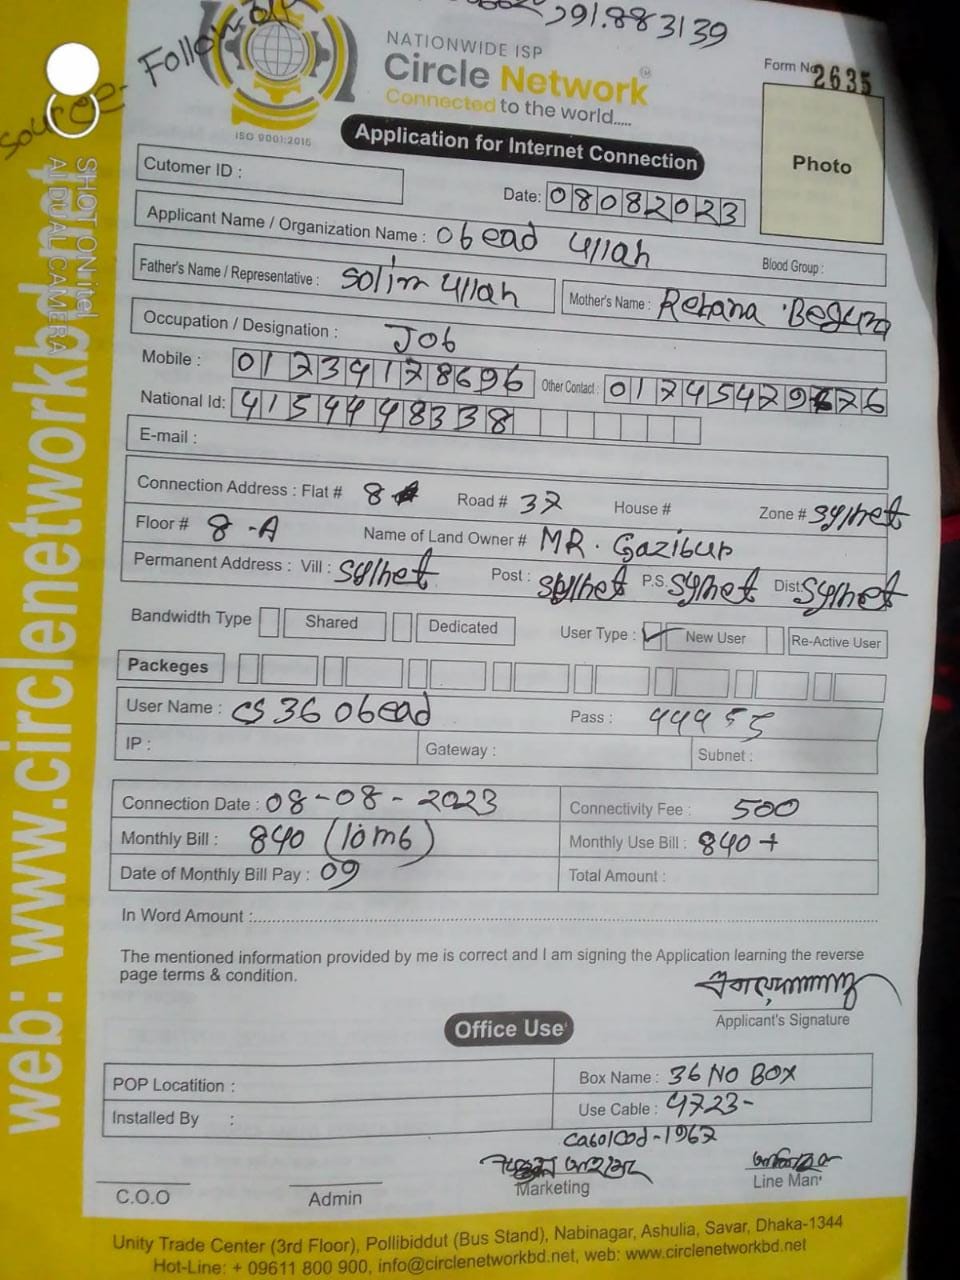 91.883139
Source- Follow up
NATIONWIDE ISP
Circle Network
Connected to the world.....
ISO 9001:2015
Form No 2635
Application for Internet Connection
Photo
Cutomer ID :
Date: 08082023
Applicant Name / Organization Name : Obead Ullah
Blood Group :
Father's Name / Representative : Solim Ullah
Mother's Name : Rehana Begum
Occupation / Designation : Job
Mobile :
Other Contact :
National Id: 4154448338
E-mail :
Connection Address : Flat # 8 Road # 37 House # Zone # Sylhet
Floor # 8-A Name of Land Owner # MR. Gazibur
Permanent Address : Vill : Sylhet Post : Sylhet P.S. Sylhet Dist Sylhet
Bandwidth Type Shared Dedicated User Type : ✓ New User Re-Active User
Packeges
User Name : CS36Obead Pass : 44455
IP : Gateway : Subnet :
Connection Date : 08-08-2023 Connectivity Fee : 500
Monthly Bill : 840 (10mb) Monthly Use Bill : 840+
Date of Monthly Bill Pay : 09 Total Amount :
In Word Amount :
The mentioned information provided by me is correct and I am signing the Application learning the reverse
page terms & condition.
Applicant's Signature
Office Use
POP Locatition : Box Name : 36 NO BOX
Installed By : Use Cable : 4723-
C.O.O Admin Marketing Line Man
Unity Trade Center (3rd Floor), Pollibiddut (Bus Stand), Nabinagar, Ashulia, Savar, Dhaka-1344
Hot-Line: + 09611 800 900, info@circlenetworkbd.net, web: www.circlenetworkbd.net
web: www.circlenetworkbd.net
SHOT ON itel
AI DUAL CAMERA